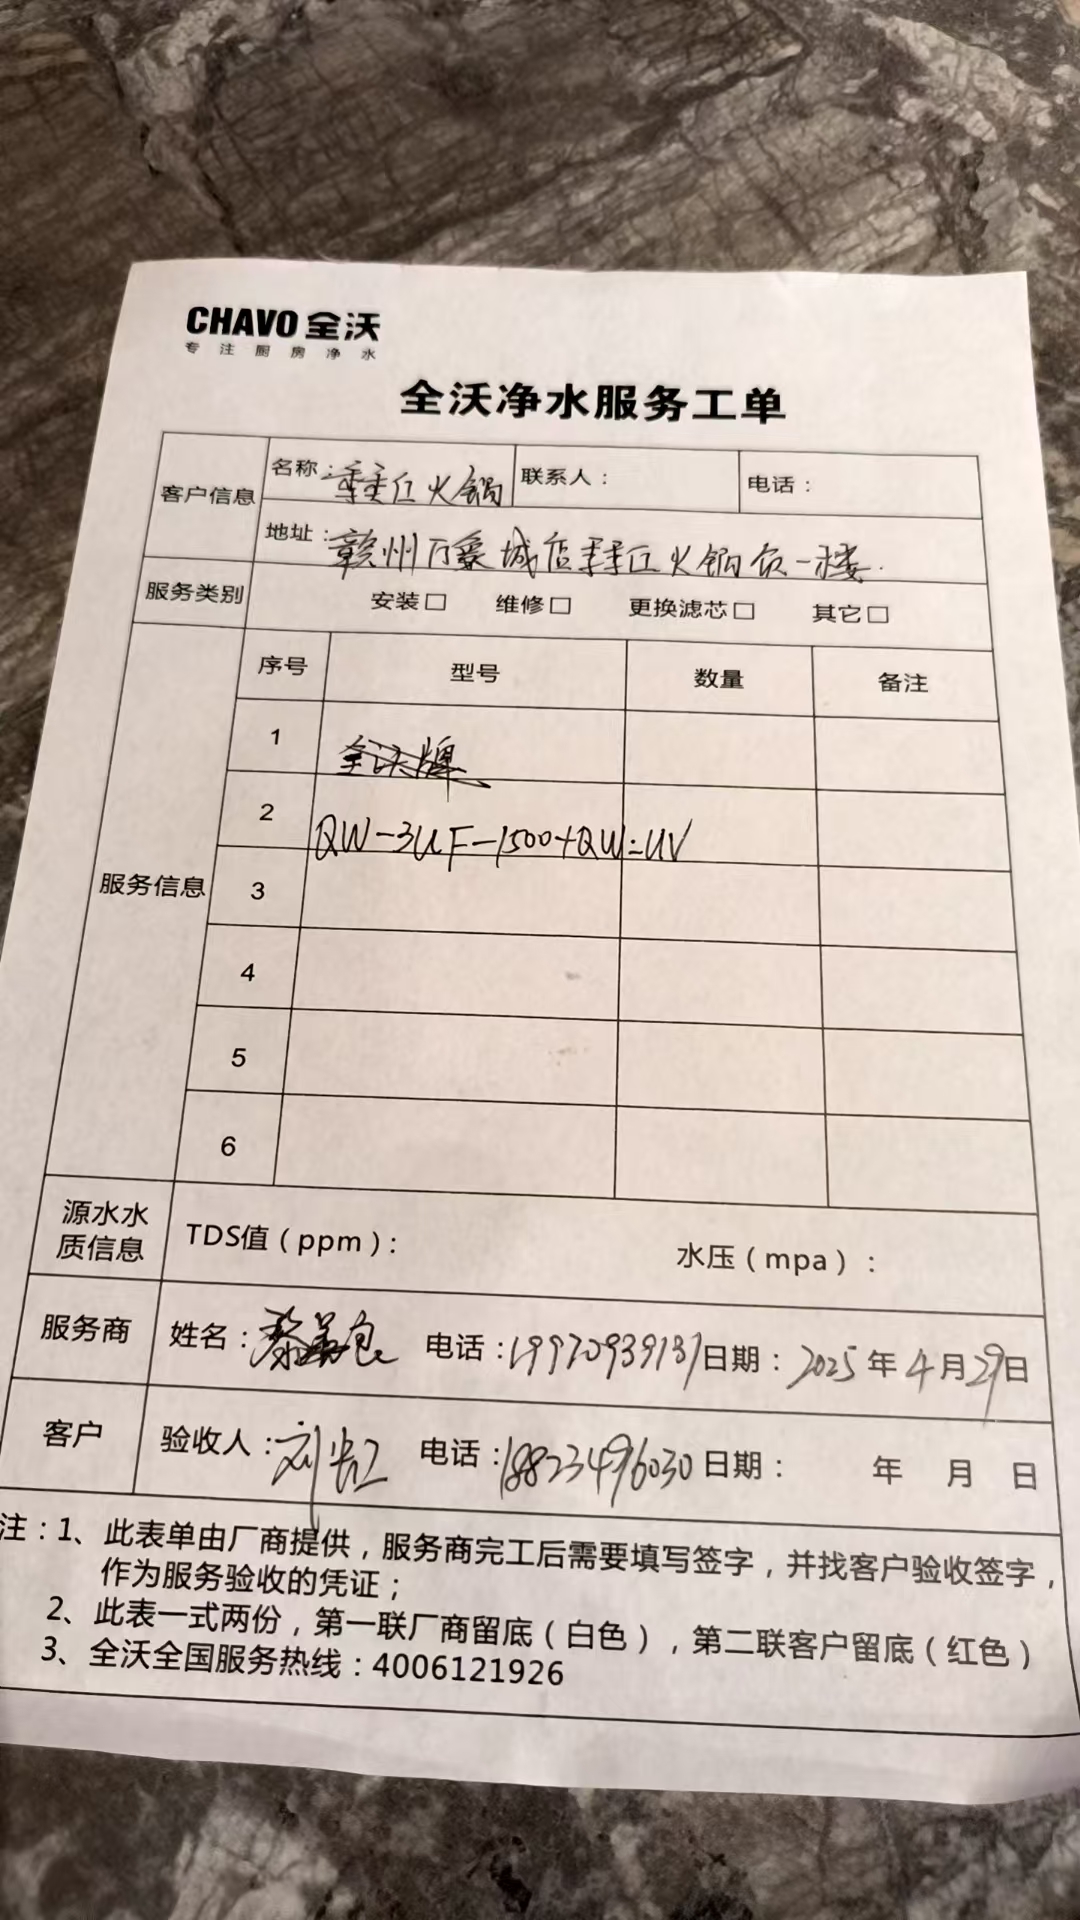 CHAVO 全沃
专注厨房净水
全沃净水服务工单
客户信息 名称：火锅 联系人： 电话：
地址：赣州万象城店 火锅负一楼.
服务类别 安装□ 维修□ 更换滤芯□ 其它□
服务信息 序号 型号 数量 备注
1 全沃牌
2 QW-3UF-1500+QW-UV
3
4
5
6
源水水质信息 TDS值（ppm）: 水压（mpa）:
服务商 姓名： 电话：19970939137 日期：2025年4月29日
客户 验收人：刘 电话：18823496030 日期： 年 月 日
注：1、此表单由厂商提供，服务商完工后需要填写签字，并找客户验收签字，
作为服务验收的凭证；
2、此表一式两份，第一联厂商留底（白色），第二联客户留底（红色）
3、全沃全国服务热线：4006121926